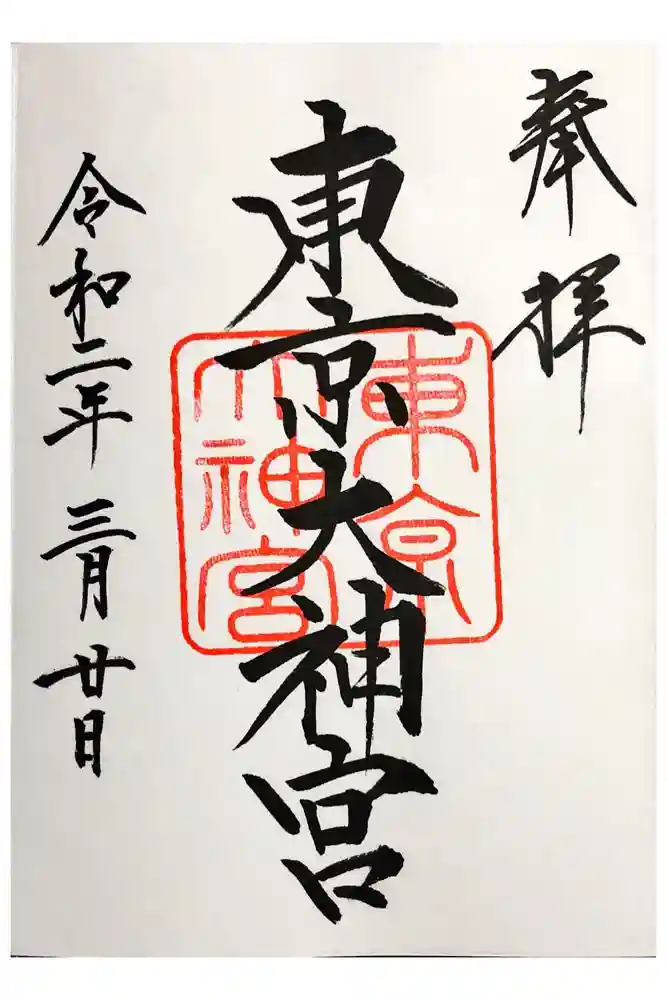 奉拝
東京大神宮
東京
大神宮
令和二年三月廿日